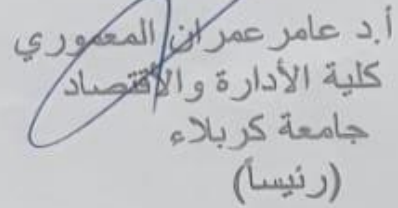 أ.د عامر عمران المعموري
كلية الأدارة والأقتصاد
جامعة كربلاء
(رئيساً)